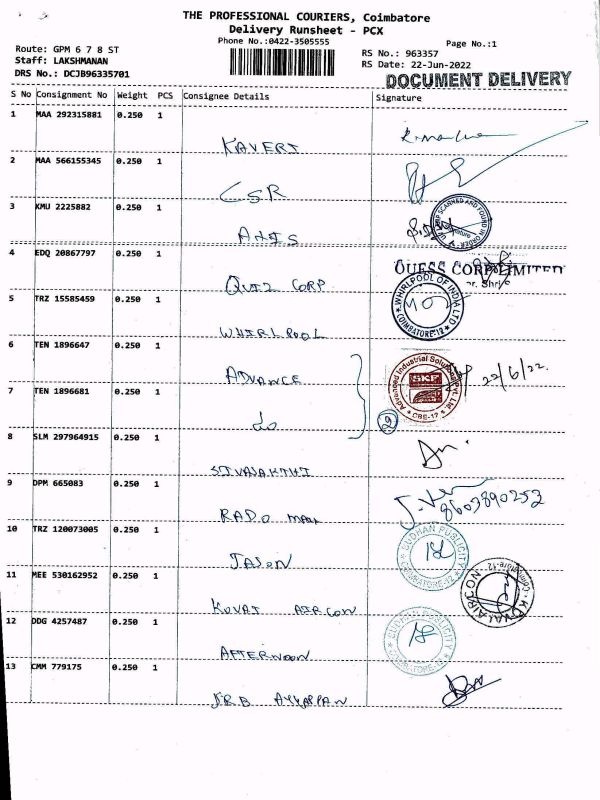 THE PROFESSIONAL COURIERS, Coimbatore
Delivery Runsheet - PCX
Phone No.:0422-3505555
Page No.:1
Route: GPM 6 7 8 ST
Staff: LAKSHMANAN
DRS No.: DCJB96335701
RS No.: 963357
RS Date: 22-Jun-2022
DOCUMENT DELIVERY
S No Consignment No Weight PCS Consignee Details Signature
1 MAA 292315881 0.250 1
KAVERI
2 MAA 566155345 0.250 1
CSR
3 KMU 2225882 0.250 1
4 EDQ 20867797 0.250 1
QUEZ CORP
QUESS CORP LIMITED
5 TRZ 15585459 0.250 1
WHIRLPOOL
WHIRLPOOL OF INDIA LTD
COIMBATORE-12
6 TEN 1896647 0.250 1
ADVANCE
Advanced Industrial Solutions Pvt. Ltd.
SKF
CBE-12
22/6/22.
7 TEN 1896681 0.250 1
do
8 SLM 297964915 0.250 1
SIVASAKTHI
9 DPM 665083 0.250 1
RADO MAN
8603890253
10 TRZ 120073005 0.250 1
JASON
DUDHAN PUBLICITY
COIMBATORE-12
11 MEE 530162952 0.250 1
KOVAI AIRCON
KOVAI AIRCON
Coimbatore-12
12 DDG 4257487 0.250 1
AFTERNOON
DUDHAN PUBLICITY
COIMBATORE-12
13 CMM 779175 0.250 1
AYYAPPAN